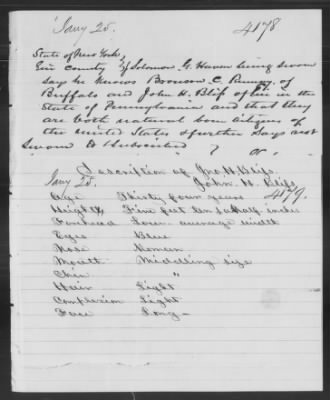 Jany 25. 4178
State of New York,
Erie County } Solomon G. Haven being sworn
says he knows Bronson C. Rumsey of
Buffalo and John H. Bliss of Erie in the
State of Pennsylvania and that they
are both natural born citizens of
the United States & further says not
Sworn & Subscribed
Description of Jno H. Bliss.
Jany 25. John H. Bliss 4179.
Age Thirty four years
Height Five feet ten & a half inches
Forehead Low average width
Eyes Blue
Nose Roman
Mouth Middling size
Chin "
Hair Light
Complexion Light
Face Long